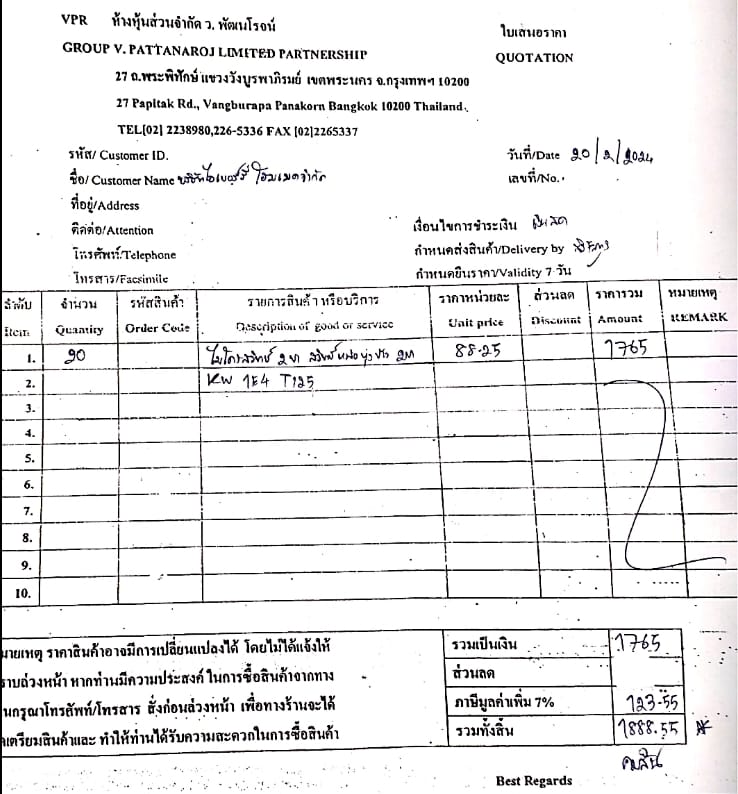 VPR ห้างหุ้นส่วนจำกัด ว. พัฒนโรจน์
ใบเสนอราคา
GROUP V. PATTANAROJ LIMITED PARTNERSHIP
QUOTATION
27 ถ.พระพิทักษ์ แขวงวังบูรพาภิรมย์ เขตพระนคร จ.กรุงเทพฯ 10200
27 Papitak Rd., Vangburapa Panakorn Bangkok 10200 Thailand.
TEL[02] 2238980,226-5336 FAX [02]2265337
รหัส/ Customer ID.
วันที่/Date 20/2/2024
ชื่อ/ Customer Name
เลขที่/No.
ที่อยู่/Address
ติดต่อ/Attention
เงื่อนไขการชำระเงิน เงินสด
โทรศัพท์/Telephone
กำหนดส่งสินค้า/Delivery by
โทรสาร/Facsimile
กำหนดยืนราคา/Validity 7 วัน
ลำดับ จำนวน รหัสสินค้า รายการสินค้า หรือบริการ ราคาหน่วยละ ส่วนลด ราคารวม หมายเหตุ
Item Quantity Order Code Description of good or service Unit price Discount Amount REMARK
1. 20 ไมโครสวิทช์ 2 ขา 88.25 1765
2. KW 1E4 T125
3.
4.
5.
6.
7.
8.
9.
10.
มายเหตุ ราคาสินค้าอาจมีการเปลี่ยนแปลงได้ โดยไม่ได้แจ้งให้
ราบล่วงหน้า หากท่านมีความประสงค์ ในการซื้อสินค้าจากทาง
นกรุณาโทรสัพท์/โทรสาร สั่งก่อนล่วงหน้า เพื่อทางร้านจะได้
ดเตรียมสินค้าและ ทำให้ท่านได้รับความสะดวกในการซื้อสินค้า
รวมเป็นเงิน 1765
ส่วนลด
ภาษีมูลค่าเพิ่ม 7% 123.55
รวมทั้งสิ้น 1888.55
Best Regards